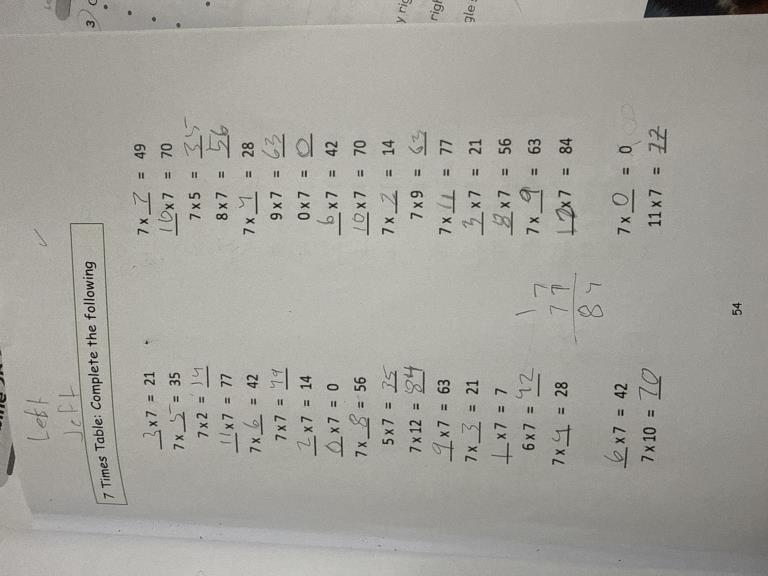 Left
Left
7 Times Table: Complete the following
3 x 7 = 21
7 x 5 = 35
7 x 2 = 14
11 x 7 = 77
7 x 6 = 42
7 x 7 = 49
2 x 7 = 14
0 x 7 = 0
7 x 8 = 56
5 x 7 = 35
7 x 12 = 84
9 x 7 = 63
7 x 3 = 21
1 x 7 = 7
6 x 7 = 42
7 x 4 = 28
6 x 7 = 42
7 x 10 = 70
7 x 7 = 49
10 x 7 = 70
7 x 5 = 35
8 x 7 = 56
7 x 4 = 28
9 x 7 = 63
0 x 7 = 0
6 x 7 = 42
10 x 7 = 70
7 x 2 = 14
7 x 9 = 63
7 x 11 = 77
3 x 7 = 21
8 x 7 = 56
7 x 9 = 63
12 x 7 = 84
7 x 0 = 0
11 x 7 = 77
1
7
77
84
54
3)
y rig
righ
gle